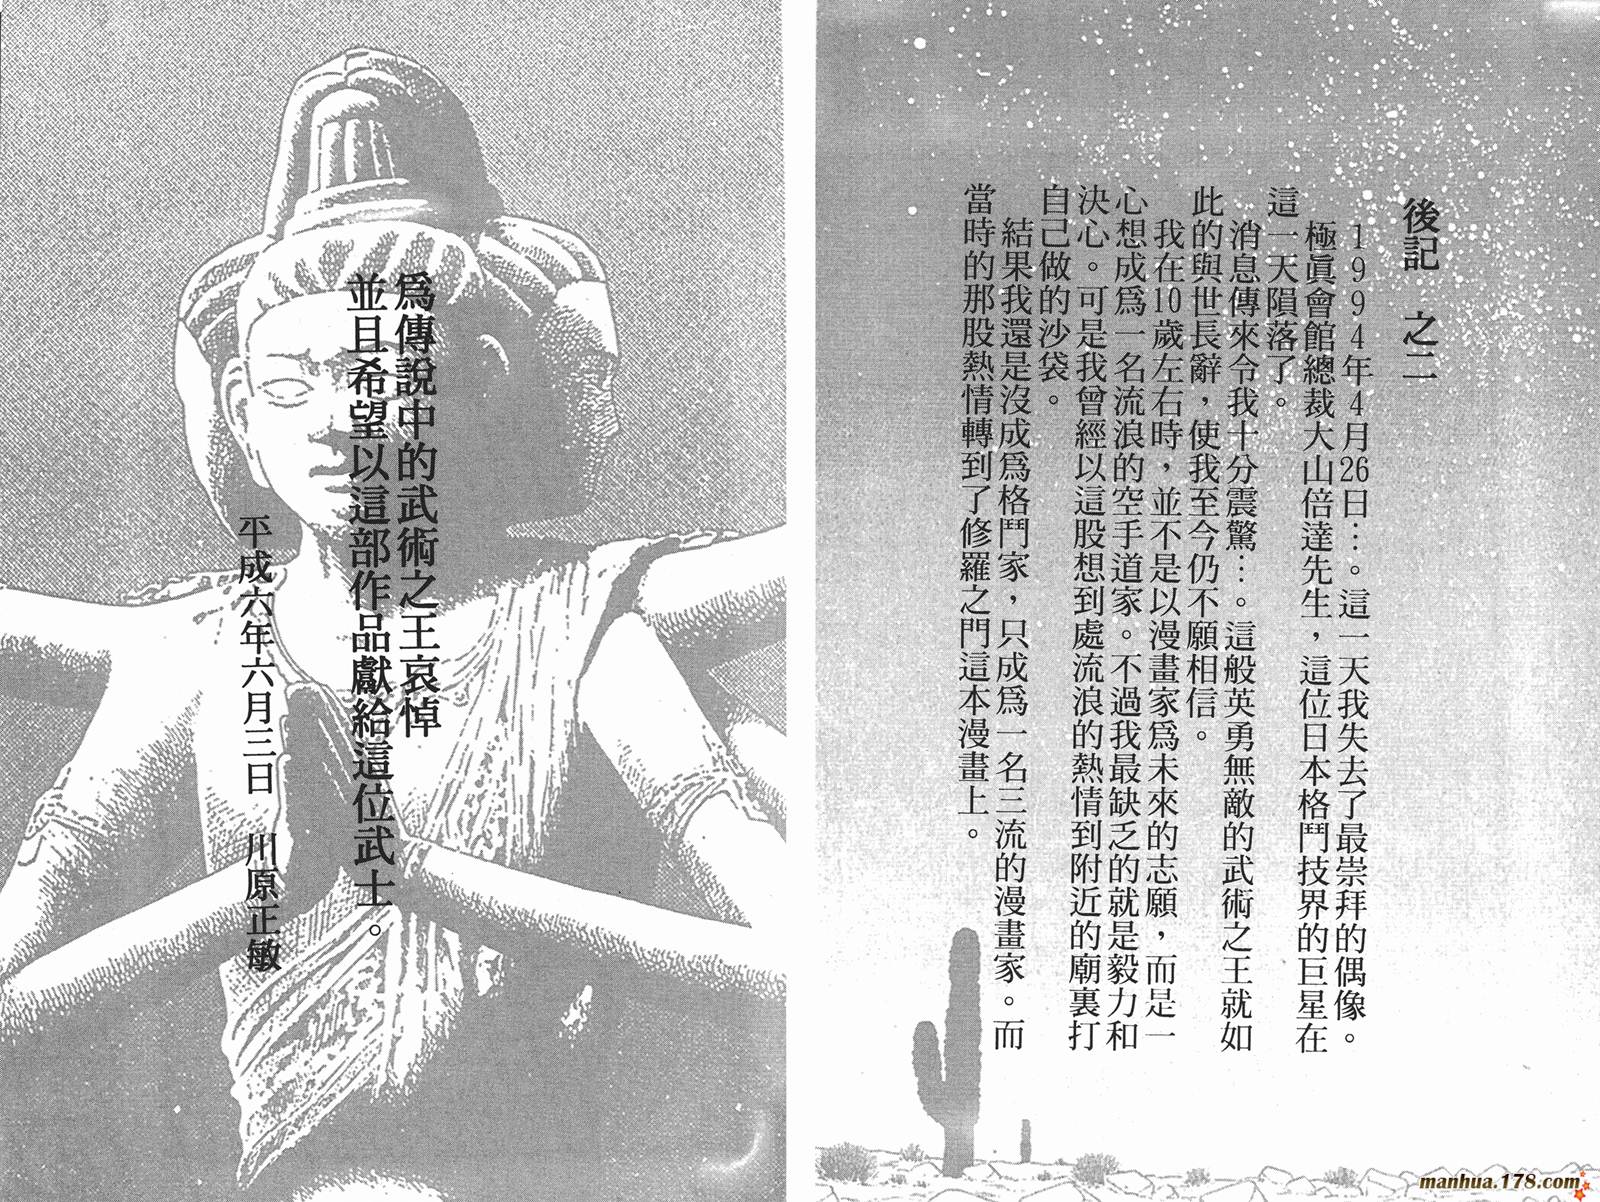 後記 之二
1994年4月26日…。這一天我失去了最崇拜的偶像。
極眞會館總裁大山倍達先生，這位日本格鬥技界的巨星在
這一天隕落了。
消息傳來令我十分震驚…。這般英勇無敵的武術之王就如
此的與世長辭，使我至今仍不願相信。
我在10歲左右時，並不是以漫畫家爲未來的志願，而是一
心想成爲一名流浪的空手道家。不過我最缺乏的就是毅力和
決心。可是我曾經以這股想到處流浪的熱情到附近的廟裏打
自己做的沙袋。
結果我還是沒成爲格鬥家，只成爲一名三流的漫畫家。而
當時的那股熱情轉到了修羅之門這本漫畫上。
爲傳說中的武術之王哀悼
並且希望以這部作品獻給這位武士。
平成六年六月三日 川原正敏
manhua.178.com